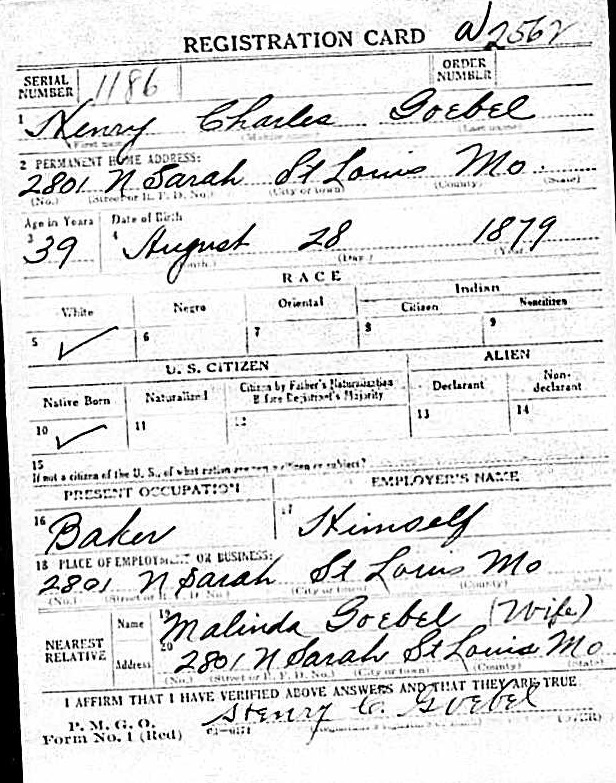 REGISTRATION CARD
SERIAL NUMBER 1186 ORDER NUMBER 2562
1 Henry Charles Goebel
(First name) (Middle name) (Last name)
2 PERMANENT HOME ADDRESS:
2801 N Sarah St Louis Mo.
(No.) (Street or R. F. D. No.) (City or town) (County) (State)
Age in Years Date of Birth
3 39 4 August 28 1879
(Month.) (Day.) (Year.)
RACE
White Negro Oriental Indian
Citizen Noncitizen
5 ✓ 6 7 8 9
U. S. CITIZEN ALIEN
Native Born Naturalized Citizen by Father's Naturalization Before Registrant's Majority Declarant Non-declarant
10 ✓ 11 12 13 14
15
If not a citizen of the U. S., of what nation are you a citizen or subject?
PRESENT OCCUPATION EMPLOYER'S NAME
16 Baker 17 Himself
18 PLACE OF EMPLOYMENT OR BUSINESS:
2801 N Sarah St Louis Mo
(No.) (Street or R. F. D. No.) (City or town) (County) (State)
NEAREST RELATIVE Name 19 Malinda Goebel (Wife)
Address 20 2801 N Sarah St Louis Mo
(No.) (Street or R. F. D. No.) (City or town) (County) (State)
I AFFIRM THAT I HAVE VERIFIED ABOVE ANSWERS AND THAT THEY ARE TRUE
P. M. G. O.
Form No. 1 (Red) Henry C. Goebel
(OVER)